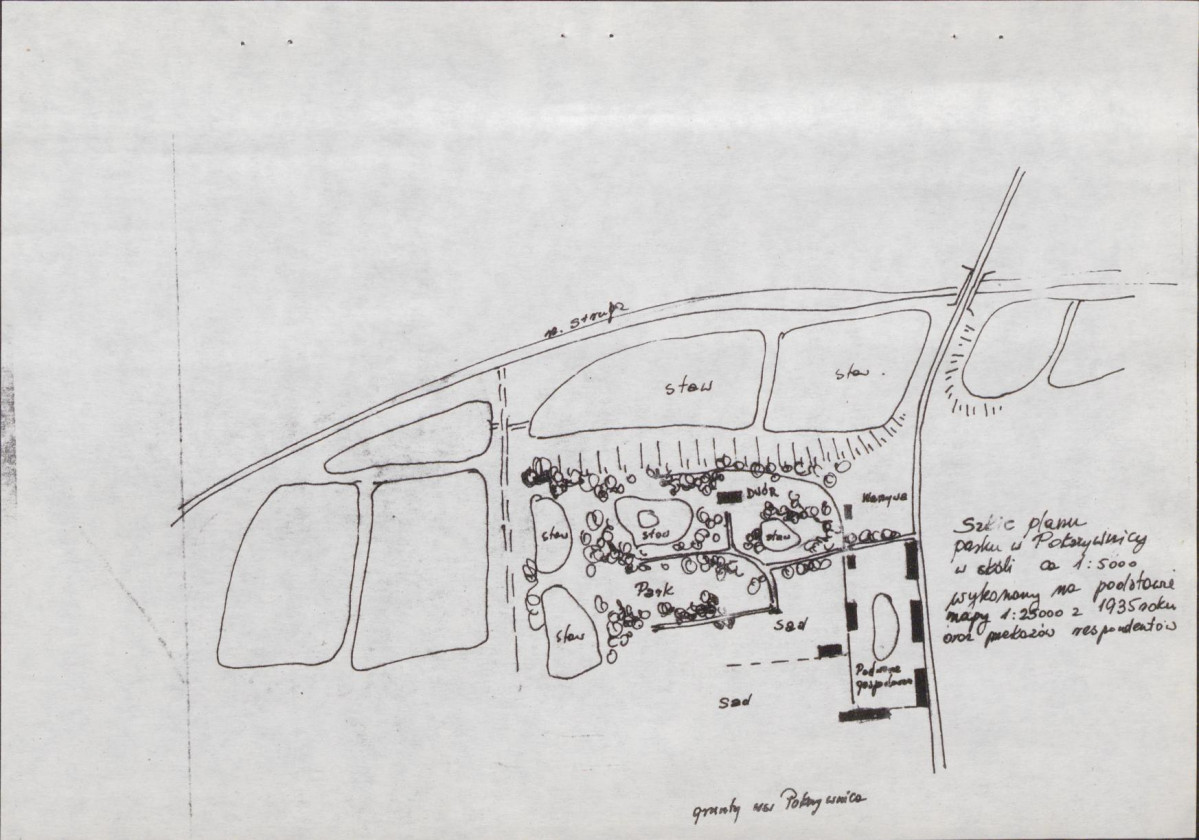 rz. Struga
staw
staw
Dwór
Warzywa
staw
staw
staw
Park
staw
Sad
Sad
Podwórze
gospodarcze
Szkic planu
parku w Pokrzywnicy
w skali ca 1:5000
wykonany na podstawie
mapy 1:25000 z 1935 roku
oraz przekazów respondentów
grunty wsi Pokrzywnica